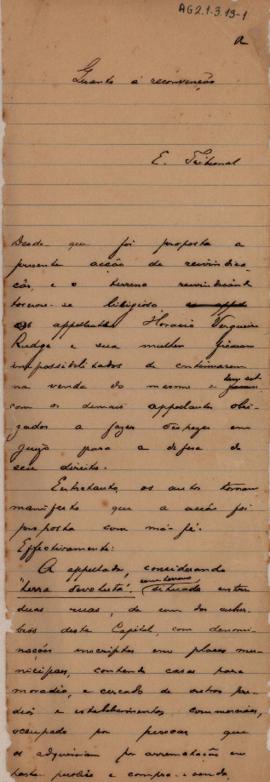 AG2.1.3.13-1
Quanto á reconvenção
E. Tribunal
Desde que foi proposta a
presente acção de reivindica-
ção, e o terreno reivindicado
tornou-se litigioso
os appellantes Horacio Vergueiro
Rudge e sua mulher ficaram
impossibilitados de continuarem
na venda do mesmo e
com os demais appellantes obri-
gados a fazer despezas em
juizo para a defesa de
seu direito.
Entretanto, os autos tornam
manifesto que a acção foi
proposta com má fé.
Effectivamente:
A appellada, considerando
"terra devoluta" um terreno situado entre
duas ruas, de um dos subur-
bios desta Capital, com denomi-
nações inscriptas em placas mu-
nicipaes, contendo casas para
moradia, e cercado de outros pre-
dios e estabelecimentos commerciaes,
occupado por pessoas que
os adquiriram por arrematação em
hasta publica e compra, sendo